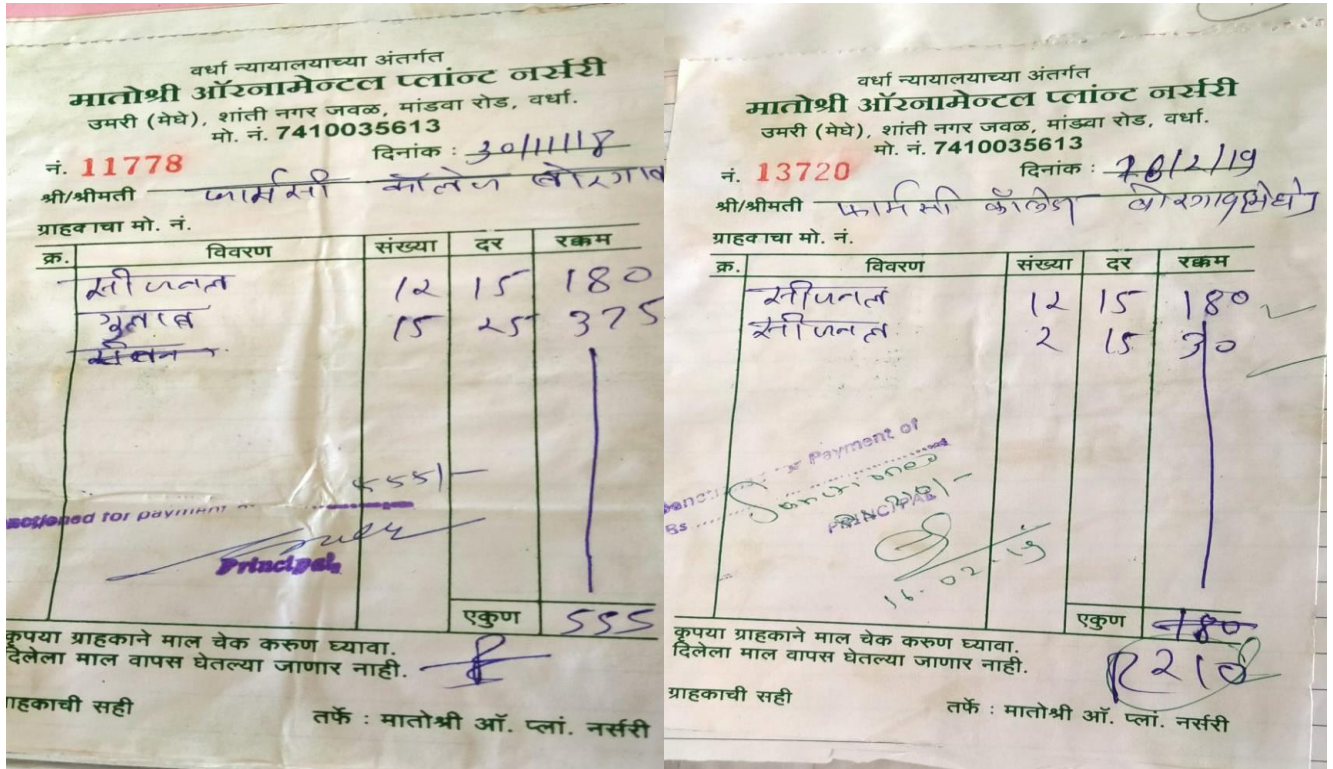 वर्धा न्यायालयाच्या अंतर्गत
मातोश्री ऑरनामेन्टल प्लांन्ट नर्सरी
उमरी (मेघे), शांती नगर जवळ, मांडवा रोड, वर्धा.
मो. नं. 7410035613
नं. 11778 दिनांक : 30/11/18
श्री/श्रीमती फार्मसी कॉलेज बोरगाव
ग्राहकाचा मो. नं.
क्र. विवरण संख्या दर रक्कम
सीजनल 12 15 180
गुलाब 15 25 375
555/-
for payment
Principal
एकुण 555
कृपया ग्राहकाने माल चेक करुण घ्यावा.
दिलेला माल वापस घेतल्या जाणार नाही.
ग्राहकाची सही
तर्फे : मातोश्री ऑ. प्लां. नर्सरी
वर्धा न्यायालयाच्या अंतर्गत
मातोश्री ऑरनामेन्टल प्लांन्ट नर्सरी
उमरी (मेघे), शांती नगर जवळ, मांडवा रोड, वर्धा.
मो. नं. 7410035613
नं. 13720 दिनांक : /2/19
श्री/श्रीमती फार्मसी कॉलेज बोरगाव (मेघे)
ग्राहकाचा मो. नं.
क्र. विवरण संख्या दर रक्कम
सीजनल 12 15 180
सीजनल 2 15 30
Payment of
Rs
Sanctioned
210/-
PRINCIPAL
16.02.19
एकुण 180
210
कृपया ग्राहकाने माल चेक करुण घ्यावा.
दिलेला माल वापस घेतल्या जाणार नाही.
ग्राहकाची सही
तर्फे : मातोश्री ऑ. प्लां. नर्सरी